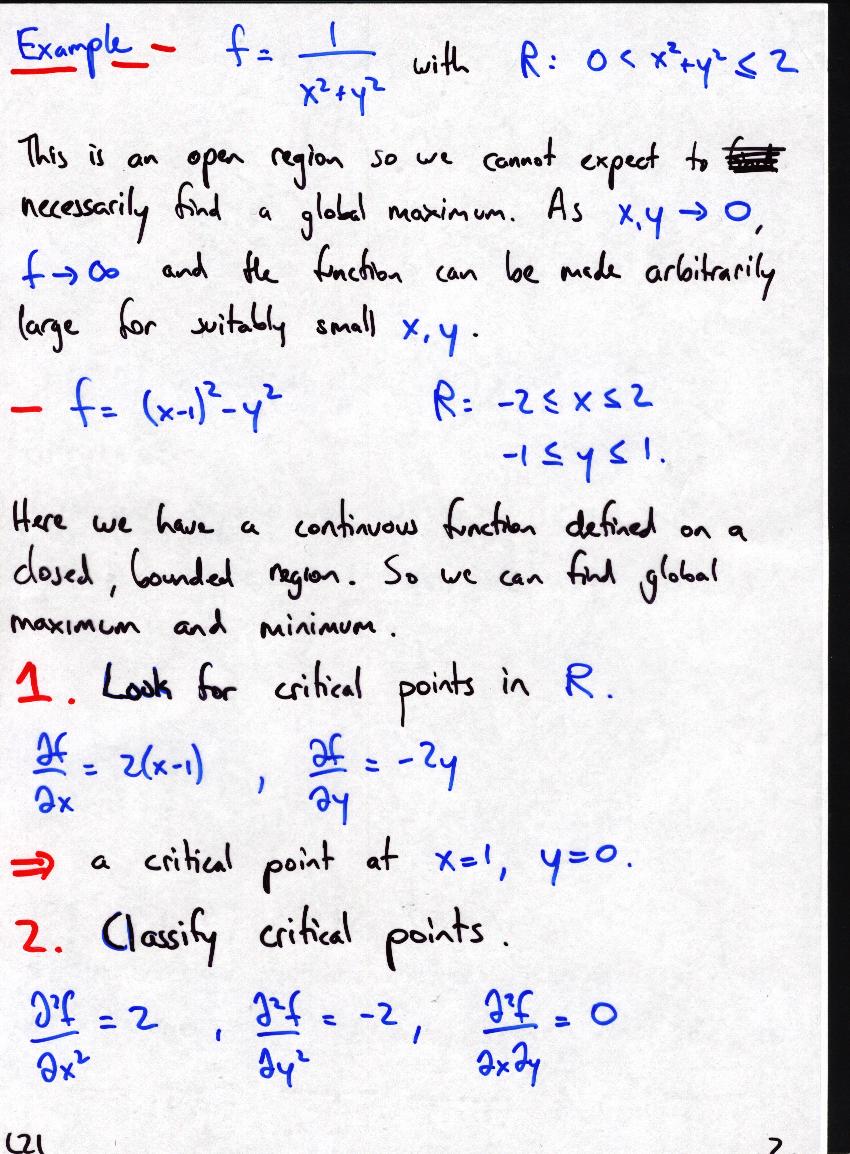 Example - f = 1/(x²+y²) with R: 0 < x²+y² ≤ 2
This is an open region so we cannot expect to
necessarily find a global maximum. As x,y → 0,
f → ∞ and the function can be made arbitrarily
large for suitably small x,y.
- f = (x-1)² - y² R: -2 ≤ x ≤ 2
-1 ≤ y ≤ 1.
Here we have a continuous function defined on a
closed, bounded region. So we can find global
maximum and minimum.
1. Look for critical points in R.
∂f/∂x = 2(x-1) , ∂f/∂y = -2y
⇒ a critical point at x=1, y=0.
2. Classify critical points.
∂²f/∂x² = 2 , ∂²f/∂y² = -2, ∂²f/∂x∂y = 0
L21 2